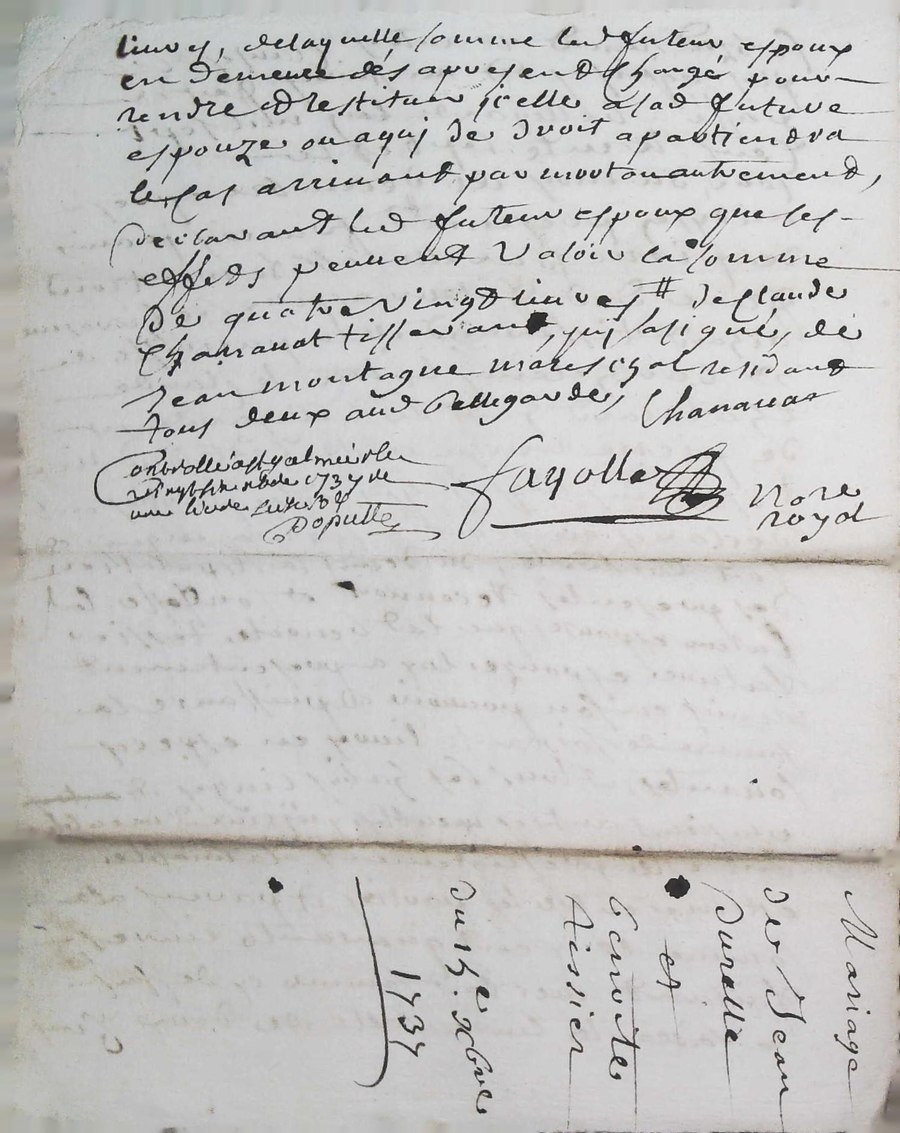 livres, delaquelle somme led futeur espoux
en demeure des apresend Chargé pour
rendre et restituer icelle a lad future
espouze ou a quj de droit apartiendra
le cas arrivant par mort ou autremend,
declarant led futeur espoux que ses
effeds peuvent valoir la somme
de quatre vingt livres ₶ de Claude
Chanavat tisserant, quj a signé, de
Jean montagne mareschal residant
tous deux aud bellegarde, Chanavat
Controllé a st galmier le
1737
Fayolle
No.re
royal
Mariage
de Jean
Durelle
et
benoite
Tissier
du 15.e xbre
1737